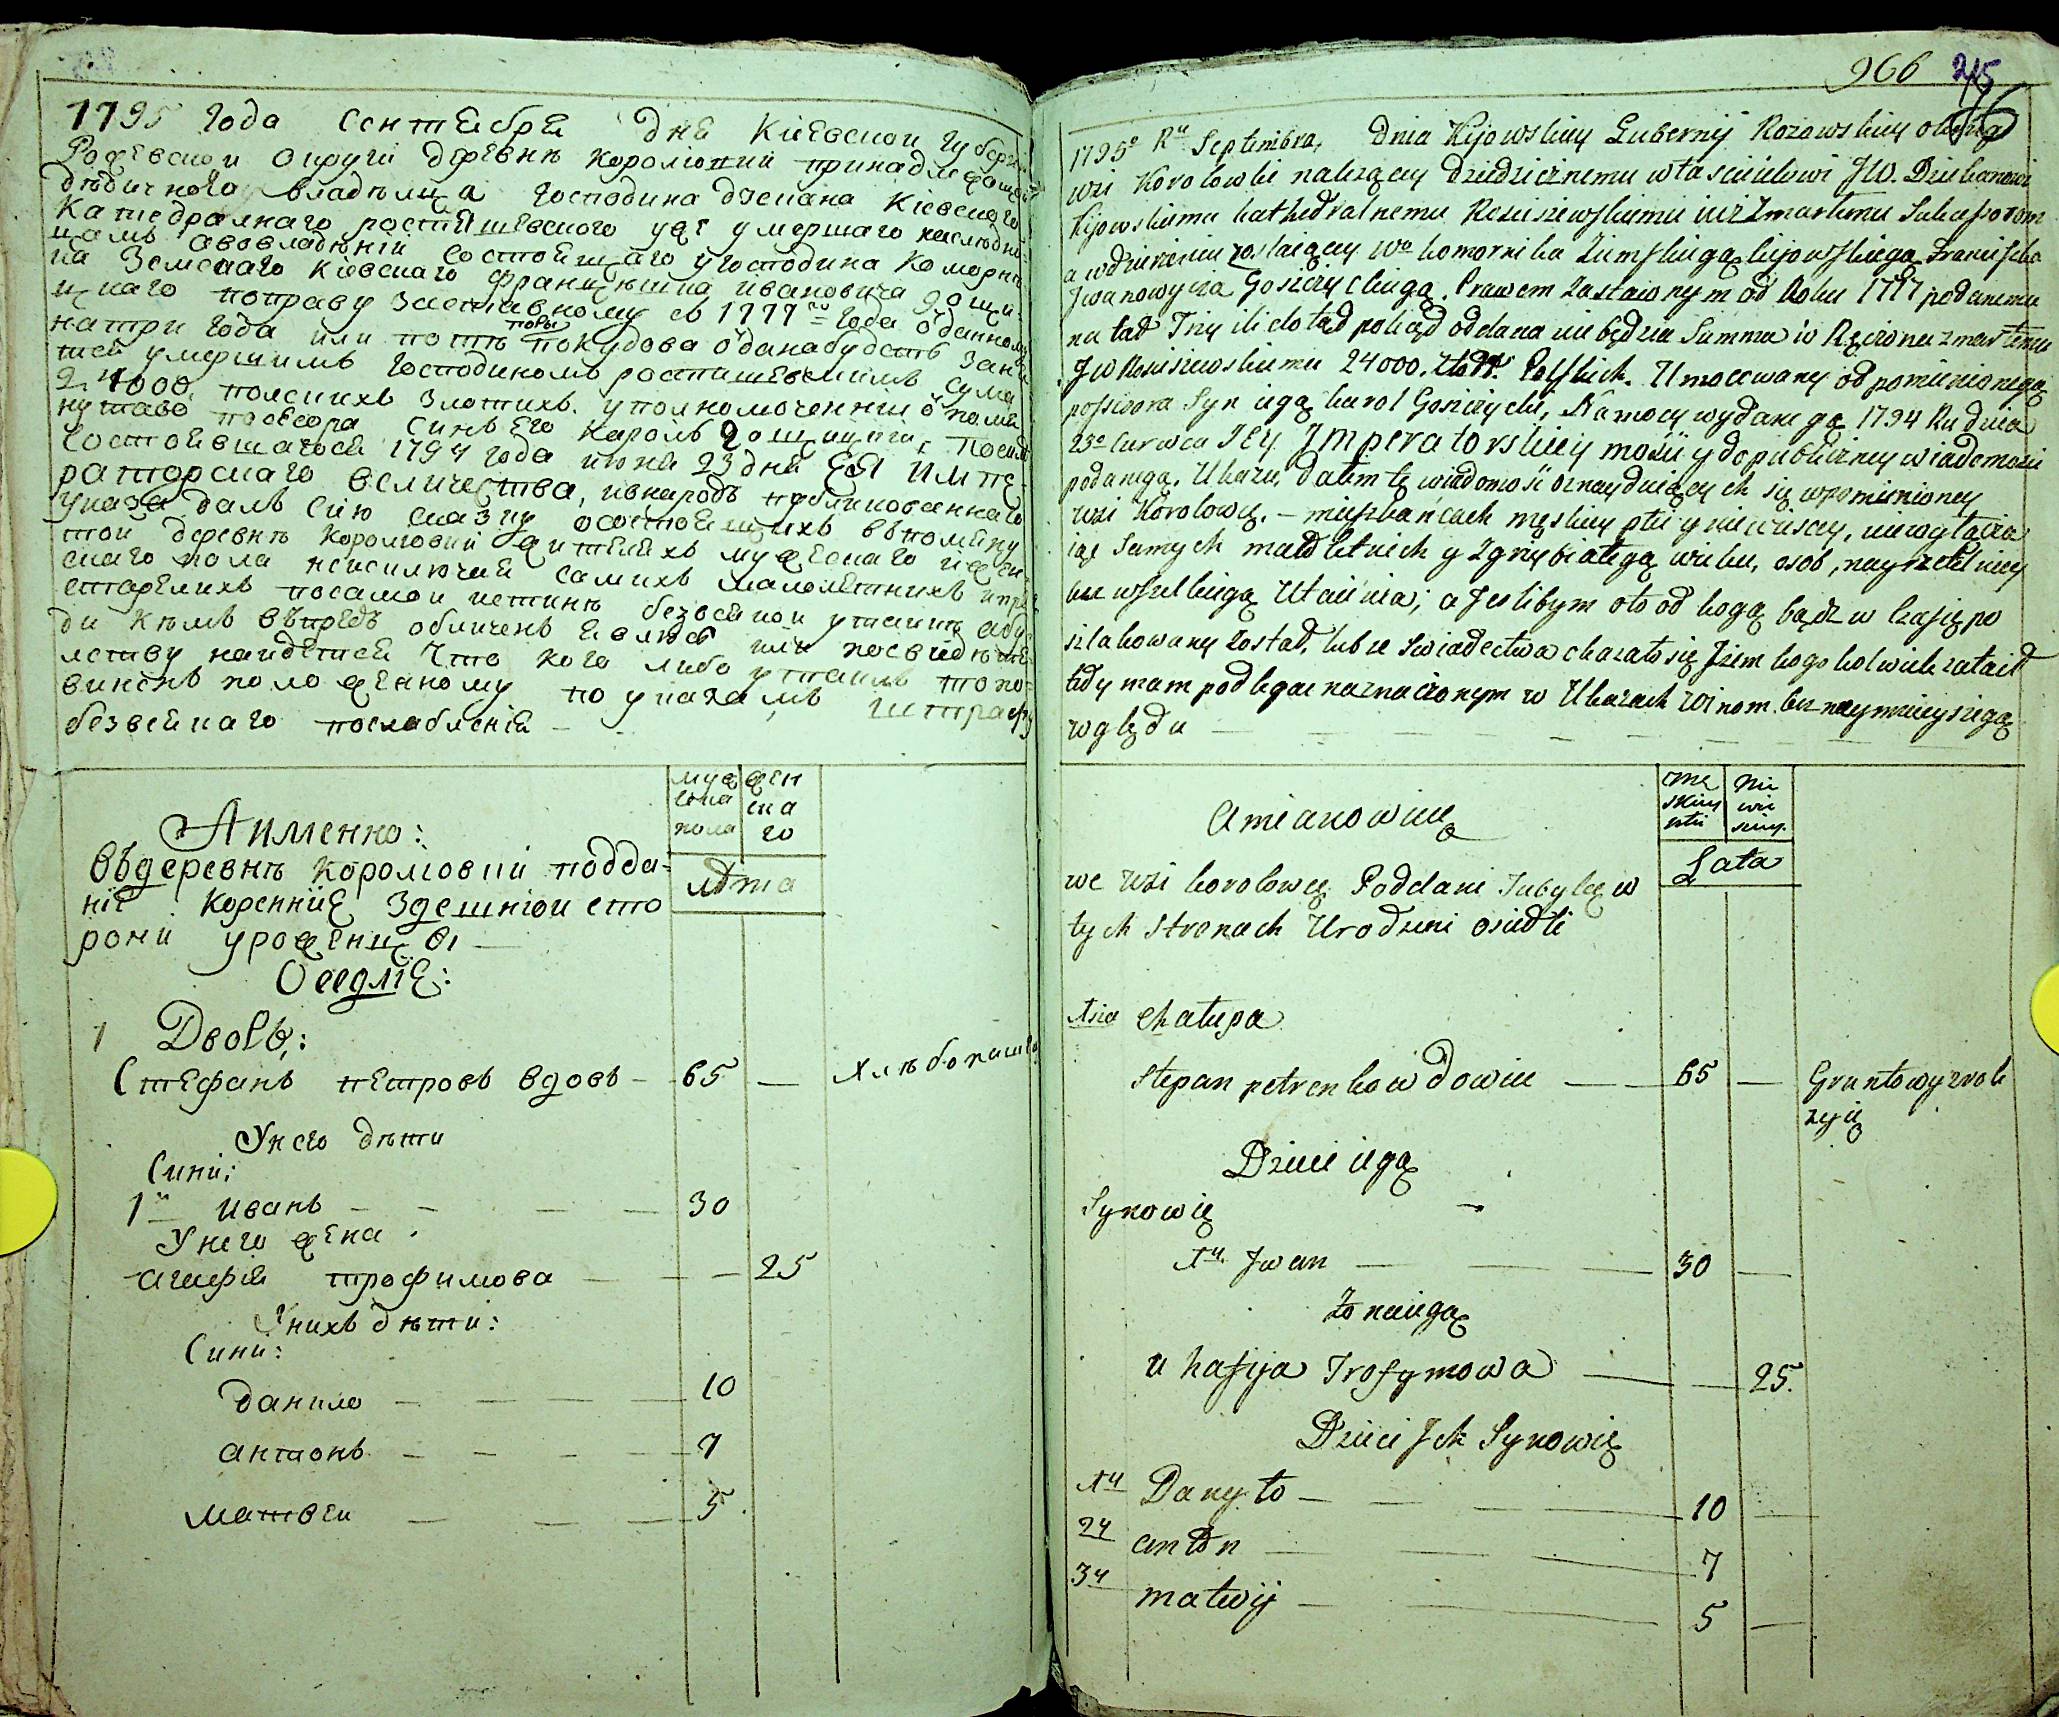 1795 года Сентебре дне Киевскои Губернии
Рожевскои округи деревне Королювки принадлежащои
дедичного владелца Господина дзекана Киевского
Катедралнаго ростишевского уже умершаго
авовладении состоящаго у господина Коморни
ка Земскаго Киевскаго Францишка ивановича гощи
цкаго поправу заставному св 1777го года
натри года или потъ поры покудова отдана будетъ
умершимъ Господиномъ ростишевскимъ сума
24000. полскихъ злотихъ. уполномоченний
посесора Синъ его Кароль гощицкий,
состоявшагося 1794 года июня 23 дня ЕЯ ИМПЕ-
раторскаго величества, ивнародъ публикованнаго
указа далъ сию сказку осостоящихъ въпомяну
той деревне Королювки жителяхъ мужескаго
скаго пола неисключая самихъ малолетнихъ
старелихъ посамои истине безвсякои утаики
ди кемъ въпредъ обличенъ явлюсь или
найдется что кого либо утаилъ то по
виненъ положенному по указамъ штрафу
безвсякаго послабления —
муж
ска
пола
жен
ска
го
лета
Аименно:
Въдеревне Королювки подда-
ние Коренние Здешнюи сто
рони урожденци —
Оседлие:
1 Дворъ:
Стефанъ петровъ вдовъ — 65 — Хлебопашецъ
Унего дети
Сини:
1й иванъ — — — — 30
Унего жена .
агафия трофимова — — — 25
Унихъ дети:
Сини:
данило — — — — 10
антонъ — — — — 7
матвеи — — — 5
966 215
76
1795o Ru Septembra, Dnia Kijowskiey Gubernij Rozowskiey okrugi
wsi Korolowki nalezącey Dziedzicznemu własciicielowi JW. Dziekanowi
Kijowskiemu kathedralnemu Rosciszewskiemu iuz Zmarłemu Sukcessorom
a wdzierzeniu zostaiącey Wo komornika Ziemskiegą kijowskiegą Franciszka
Jwanowycza Goszczyckiegą. Prawem Zastawnym od Roku 1777 podanemu
na lat Trzy ili do tąd pokiąd oddana nie będzia Summa w Ręce onu zmarłemu
JW Rosciszewskiemu 24000. Złott. Polskich. Umocowany od pomienionegą
possesora Syn iegą karol Goszczycki, Na mocy wydanegą 1794 Ru dnia
23o Czerwca JEy Imperatorskiey mości y do publiczney wiadomości
podanegą. Ukazu, dałem tę wiadomość oznayduiących się wpomienioney
wsi Korolowcę. — mieszkańcach męskiey płci y niewiesciey, niewyłącza
iąc Samych małoletnich y zgrzybiałegą wieku, osob, nayrzetelniey
bez wszelkiegą Utaienia; a Jeslibym oto od kogą bądz w Czasię po
szlakowany został, lub ze swiadectwa okazało się Jżem kogo kolwiek zataił
tedy mam podlegac naznaczonym w Ukazach winom. bez naymnieyszegą
względu — — — — — —
mę
skiey
płci
Nie
wie
sciey.
Lata
amianowicię
we wsi korolowcę Poddani Tubylcę w
tych stronach Urodzeni osiedli
1sza Chałupa
Stepan petrenko wdowiec — 65 — Gruntowy zrob
żyię
Dzieci iegą
Synowię
1y Jwan — — — 30 —
Żona iegą
u hafija Trofymowa — — 25.
Dzieci Jch Synowię
1y Danyło — — — 10 —
2y anton — — — 7
3y matwij — — 5 —